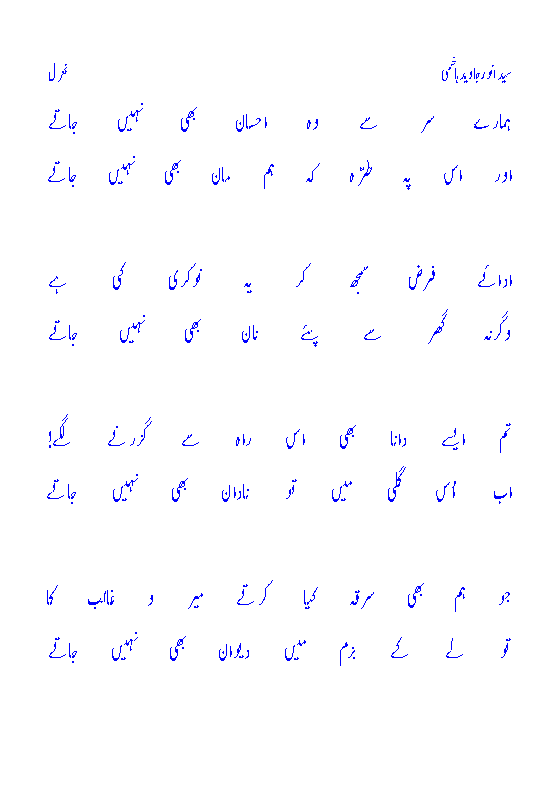 سید انور جاوید ہاشمی غزل
ہمارے سر سے وہ احسان بھی نہیں جاتے
اور اس پہ طرّہ کہ ہم مان بھی نہیں جاتے
ادائے فرض سمجھ کر یہ نوکری کی ہے
وگرنہ گھر سے پئے نان بھی نہیں جاتے
تم ایسے دانا بھی اس راہ سے گزرنے لگے!
اب اُس گلی میں تو نادان بھی نہیں جاتے
جو ہم بھی سرقہ کیا کرتے میر و غالب کا
تو لے کے بزم میں دیوان بھی نہیں جاتے